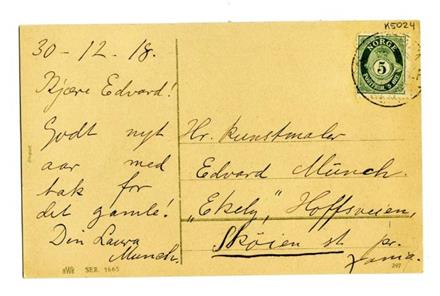 K5024
30-12-18.
Kjære Edvard!
Godt nyt
aar med
tak for
det gamle!
Din Laura
Munch.
NORGE
5
Hr. Kunstmaler
Edvard Munch.
"Ekely," Hoffsveien,
Skøien st. pr.
SER. 1665
247